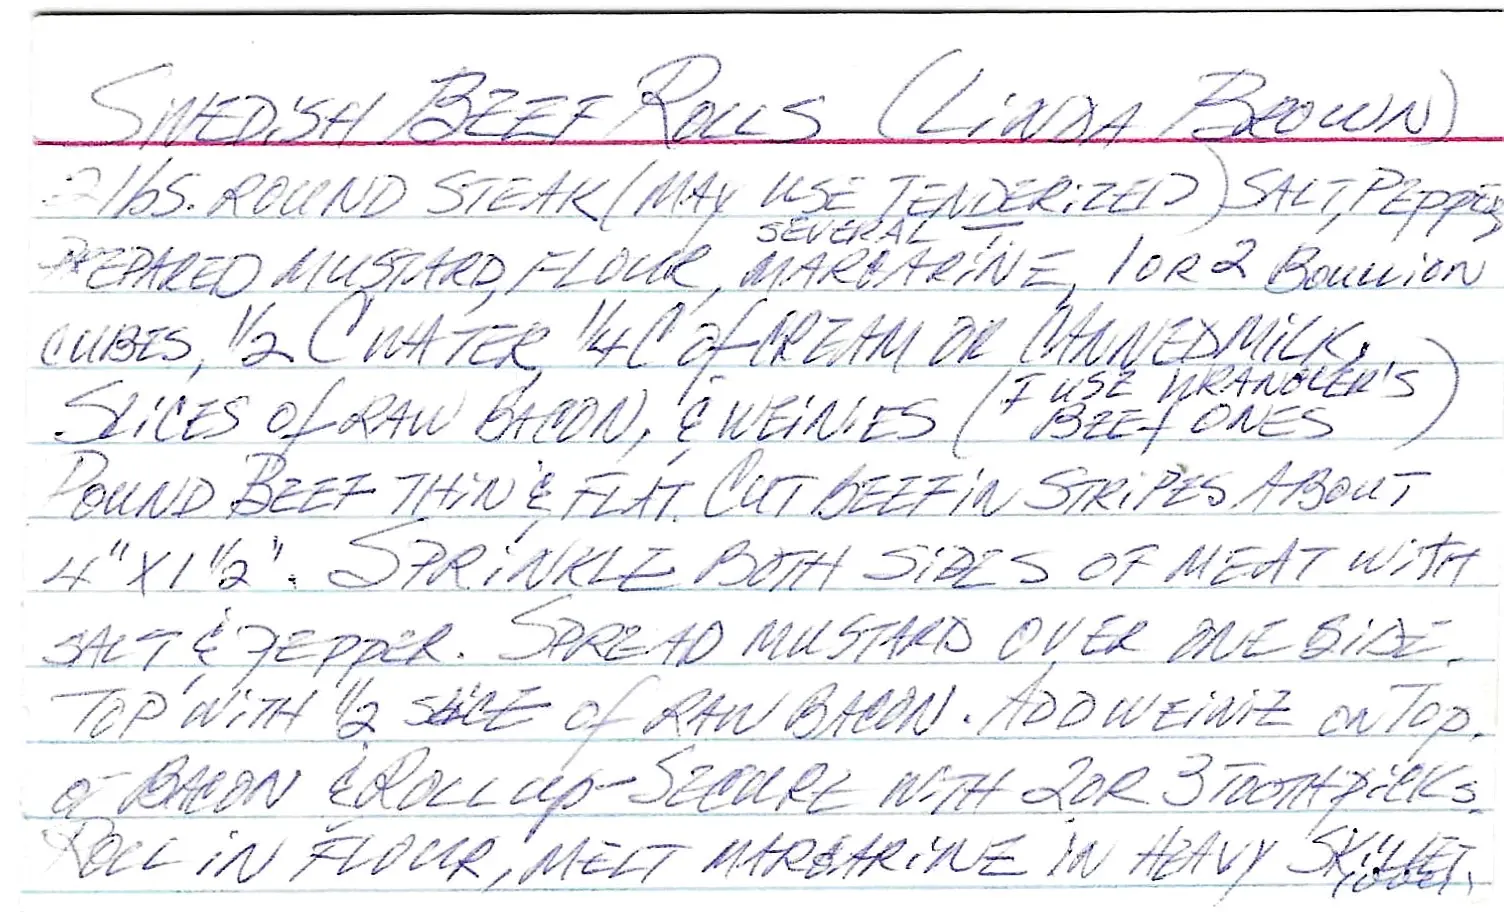 SWEDISH BEEF ROLLS (LINDA BROWN)
2 lbs. ROUND STEAK (MAY USE TENDERIZED) SALT, PEPPER,
PREPARED MUSTARD, FLOUR, MARGARINE, 1 OR 2 BOULLION
CUBES, 1/2 C WATER, 1/4 C of CREAM OR CANNED MILK,
SEVERAL
SLICES of RAW BACON, & WEINIES (I USE WRANGLER'S
BEEF ONES)
POUND BEEF THIN & FLAT. CUT BEEF IN STRIPES ABOUT
4" X 1 1/2". SPRINKLE BOTH SIDES OF MEAT WITH
SALT & PEPPER. SPREAD MUSTARD OVER ONE SIDE.
TOP WITH 1/2 SLICE of RAW BACON. ADD WEINIE ON TOP.
of BACON & ROLL up - SECURE WITH 2 OR 3 TOOTHPICKS.
ROLL IN FLOUR, MELT MARGARINE IN HEAVY SKILLET